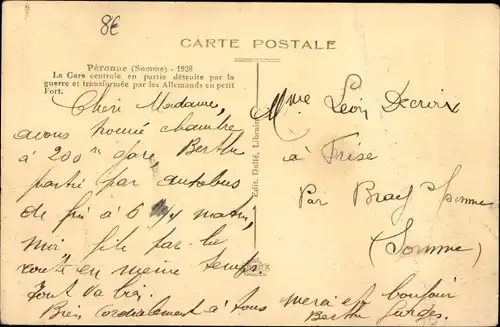 8€
CARTE POSTALE
Péronne (Somme) - 1928
La Gare centrale en partie détruite par la
guerre et transformée par les Allemands en petit
Fort.
Edit. Dolé, Librairie
Chère Madame,
avons trouvé chambre
à 200 m gare, Berthe
partie par autobus
de à 6 matin,
moi file par la
route en même temps
Tout va bien.
Bien cordialement à tous merci et bonjour
Berthe
Mme Léon Decroix
à Frise
Par Bray s/ Somme
(Somme)